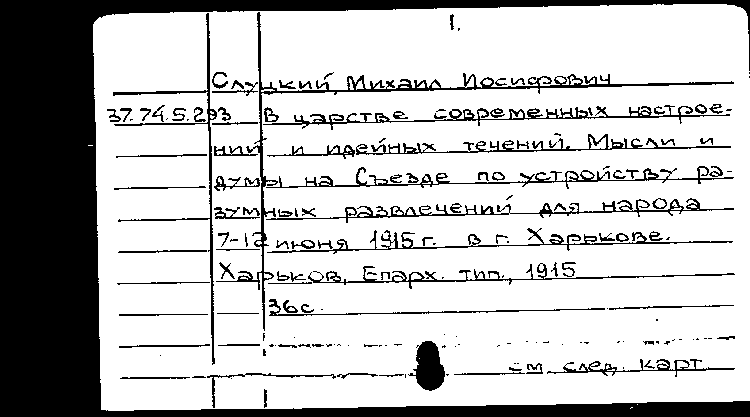 1.
Слуцкий, Михаил Иосифович
37.74.5.293 В царстве современных настрое-
ний и идейных течений. Мысли и
думы на Съезде по устройству ра-
зумных развлечений для народа
7-12 июня 1915 г. в г. Харькове.
Харьков, Епарх. тип., 1915
36 с.
см. след. карт